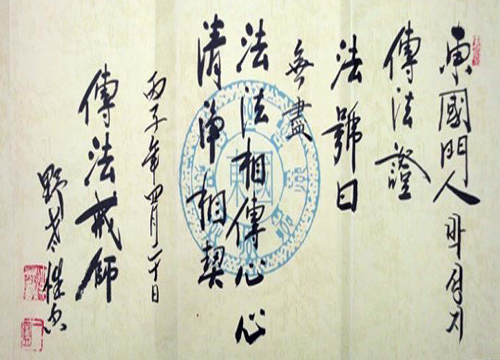 東國門人
傳法證
法號曰
無盡
法法相傳心心
清淨相契
丙子年四月二十日
傳法戒師